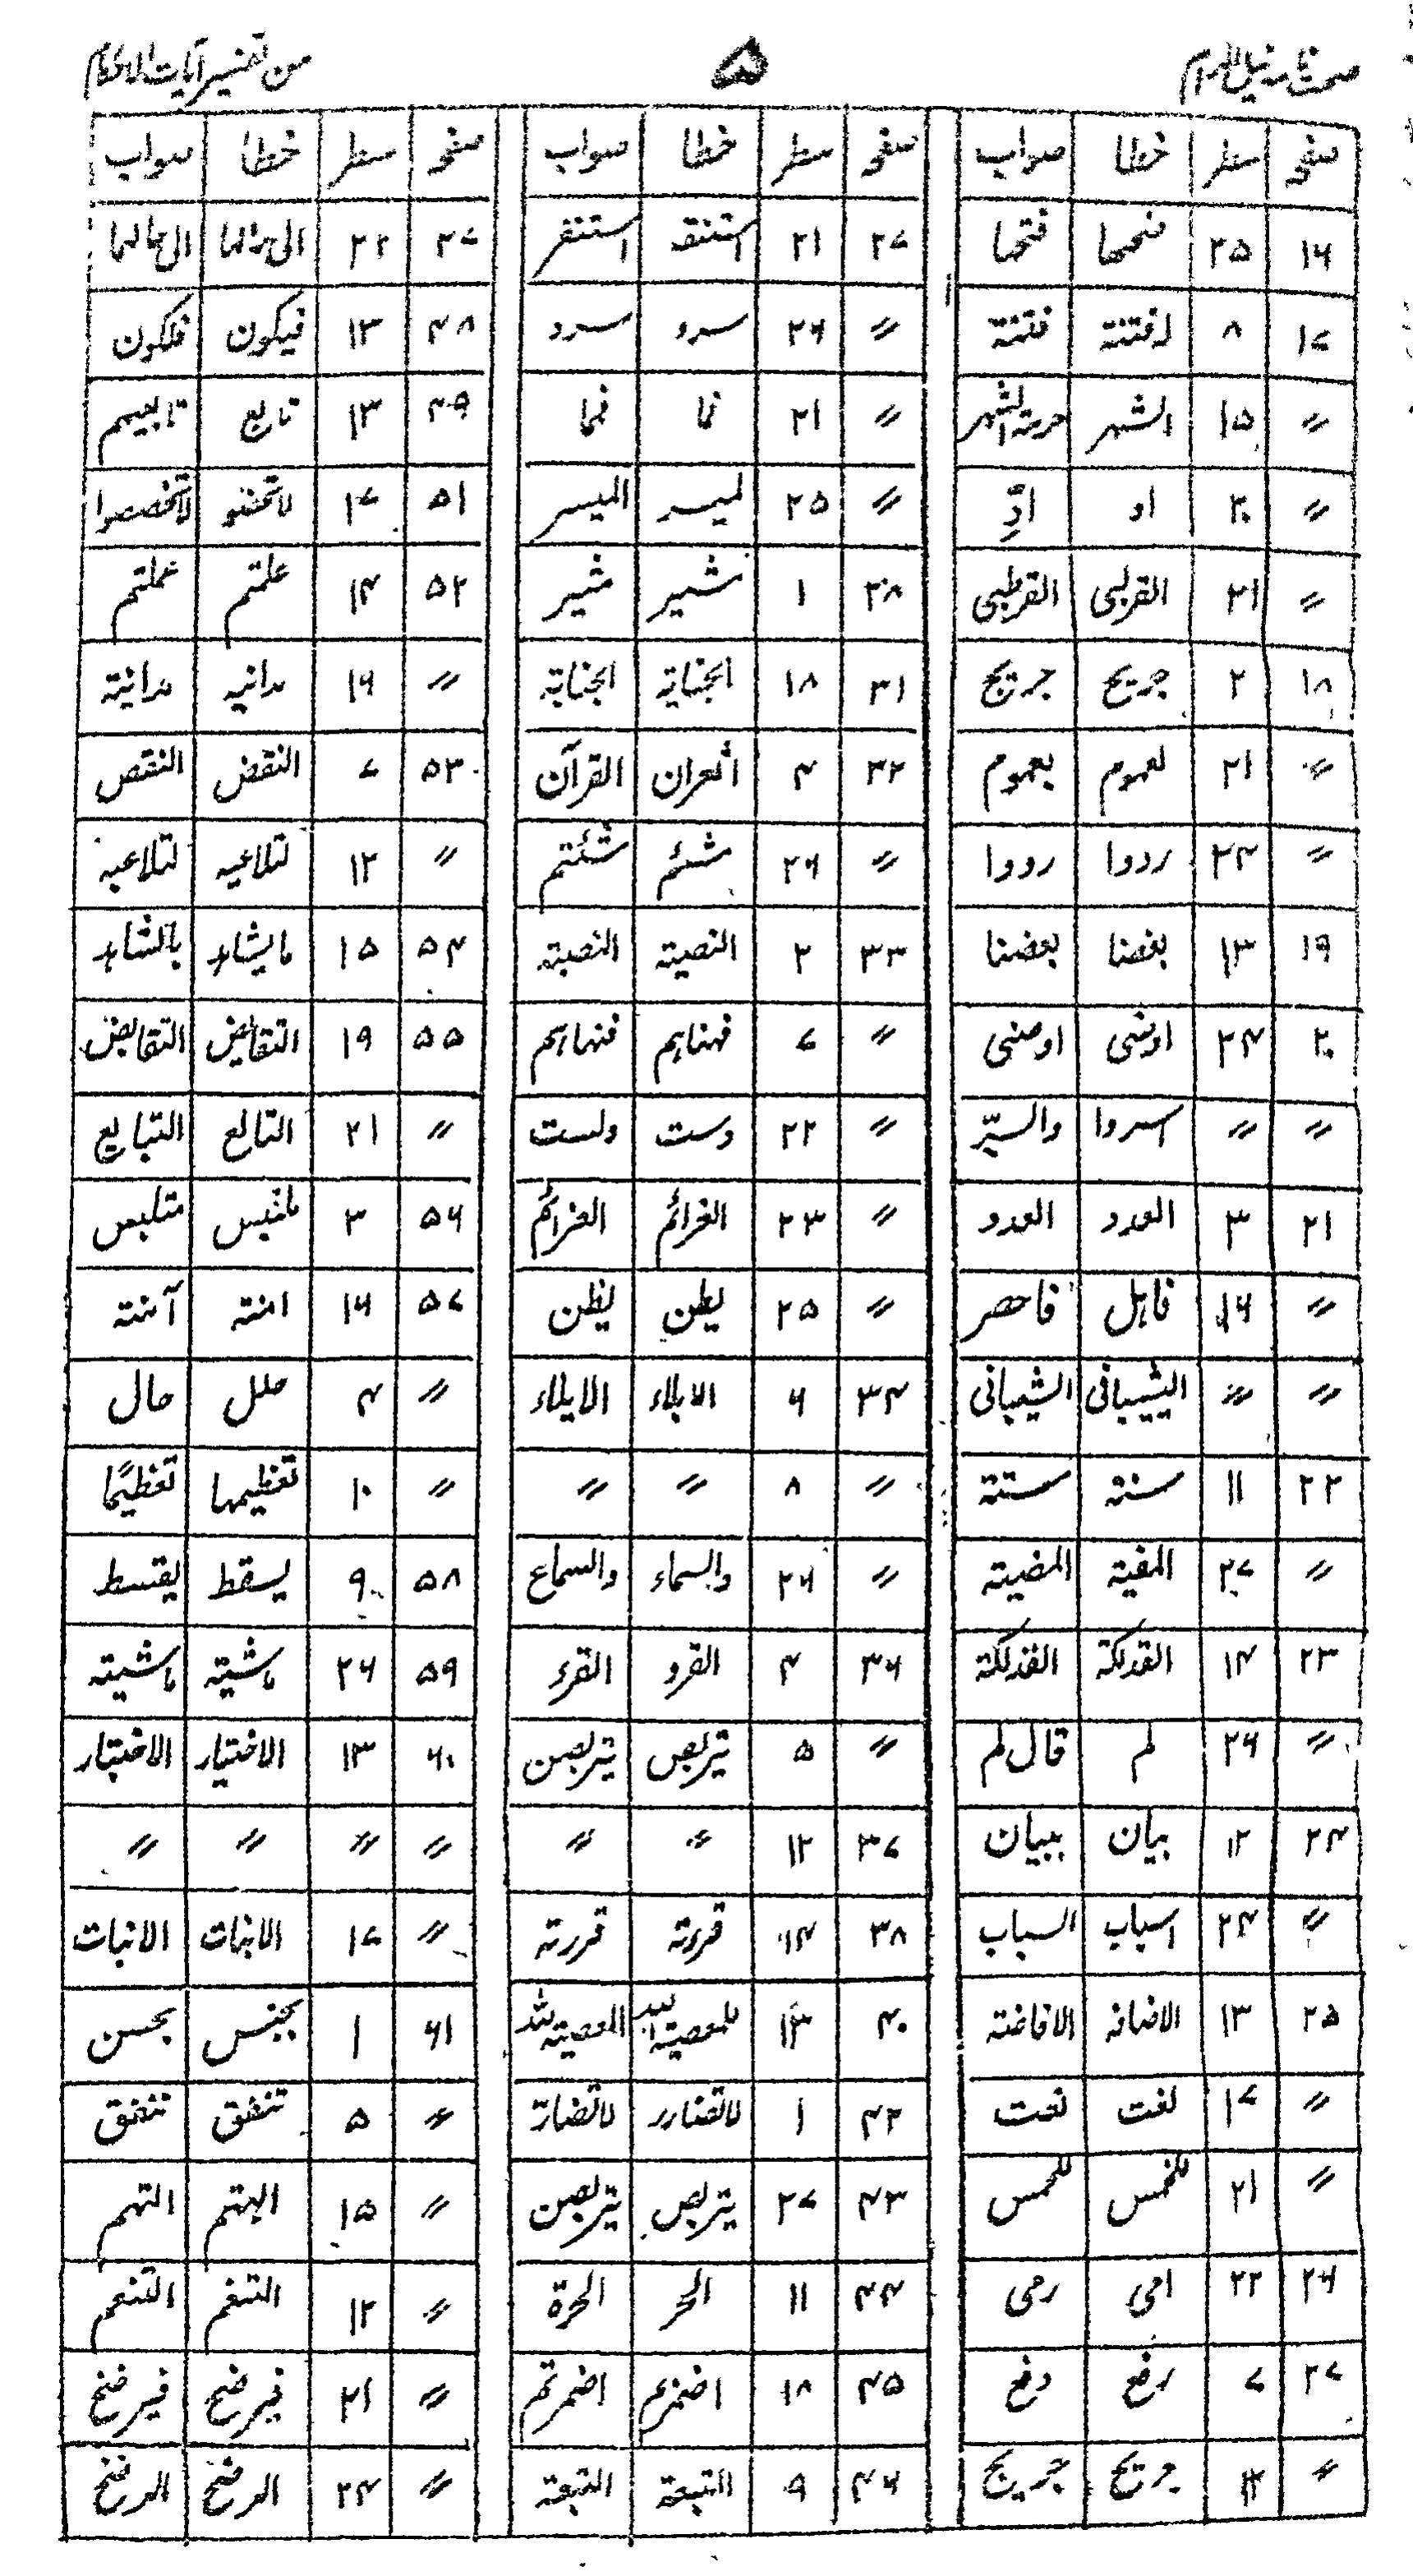 صحتنامہ نیل المرام ۵ من تفسیر آیات الاحکام
صفحہ سطر خطا صواب صفحہ سطر خطا صواب صفحہ سطر خطا صواب
۱۶ ۲۵ فتحہا ۲۷ ۲۱ استنفر ۲۷ ۲۲
۱۷ ۸ فتنتہ 〃 ۲۶ سرو سرد ۴۸ ۱۳ فیکون فلکون
〃 ۱۵ الشہر حرمتہ الشہر 〃 ۲۱ نما فما ۴۹ ۱۳ تابع تابعیہم
〃 ۲۰ او ادِّ 〃 ۲۵ لمیسر المیسر ۵۱ ۱۷ لا تخصصوا
〃 ۲۱ القربی القرطبی ۲۸ ۱ شیر مشیر ۵۲ ۱۴ علمتم عملتم
۱۸ ۲ جریح جریج ۳۱ ۱۸ الجنایۃ الجنابۃ 〃 ۱۶ مدانیہ مدانیتہ
〃 ۲۱ لعموم بعموم ۳۲ ۴ القرآن ۵۳ ۷ النقض النقص
〃 ۲۴ رددا رووا 〃 ۲۶ شئم شئتم 〃 ۱۲ لتلاعیہ لتلاعبہ
۱۹ ۱۳ بغضنا بعضنا ۳۳ ۲ النصیتہ النصبتہ ۵۴ ۱۵ مایشاہد بالشاہد
۲۰ ۲۴ اوصنی 〃 ۷ فہناہم فنہاہم ۵۵ ۱۹ التقایض التقابض
〃 〃 اسروا والسیّر 〃 ۲۲ وست ولست 〃 ۲۱ التالع التبایع
۲۱ ۳ العدد العدو 〃 ۲۳ الغرائم العزائم ۵۶ ۳ متلبس
〃 ۱۶ فاہل فاحصر 〃 ۲۵ یطن یظن ۵۷ ۱۶ امنتہ آمنتہ
〃 〃 الیشیبانی الشیبانی ۳۴ ۶ الابلاء الایلاء 〃 ۴ حلل حال
۲۲ ۱۱ سنتہ ستتہ 〃 ۸ 〃 〃 〃 ۱۰ تعظیمہا تعظیمًا
〃 ۲۷ المضیتہ 〃 ۲۶ والسماء والسماع ۵۸ ۹ یسقط یقسط
۲۳ ۱۴ القدلکۃ الفذلکۃ ۳۶ ۴ القرو القرء ۵۹ ۲۶ ماشیتہ ماشیتہ
〃 ۲۶ لم قال لم 〃 ۵ یتربص یتربصن ۶۰ ۱۳ الاختیار الاختبار
۲۴ ۱۲ بیان ببیان ۳۷ ۱۲ 〃 〃 〃 〃 〃 〃
〃 ۲۴ اسباب السباب ۳۸ ۱۴ قررتہ 〃 ۱۷ الاثبات الانبات
۲۵ ۱۳ الاضافہ الافاضتہ ۴۰ ۱۳ ۶۱ ۱ بجنس بحسن
〃 ۱۷ لغت نعت ۴۲ ۱ لاتضارر لاتضارّ 〃 ۵ تنفق
〃 ۲۱ للخمس للحمس ۴۳ ۲۷ یتربص یتربصن 〃 ۱۵ الہتم التہم
۲۶ ۲۲ امی رمی ۴۴ ۱۱ الحر الحرۃ 〃 ۱۲ التنغم التنعم
۲۷ ۷ رفع دفع ۴۵ ۱۸ اضمرتم 〃 ۲۱ فیرضخ فیرضخ
〃 ۱۲ جریج ۴۶ ۹ التبعۃ 〃 ۲۴ الرضخ الرضخ